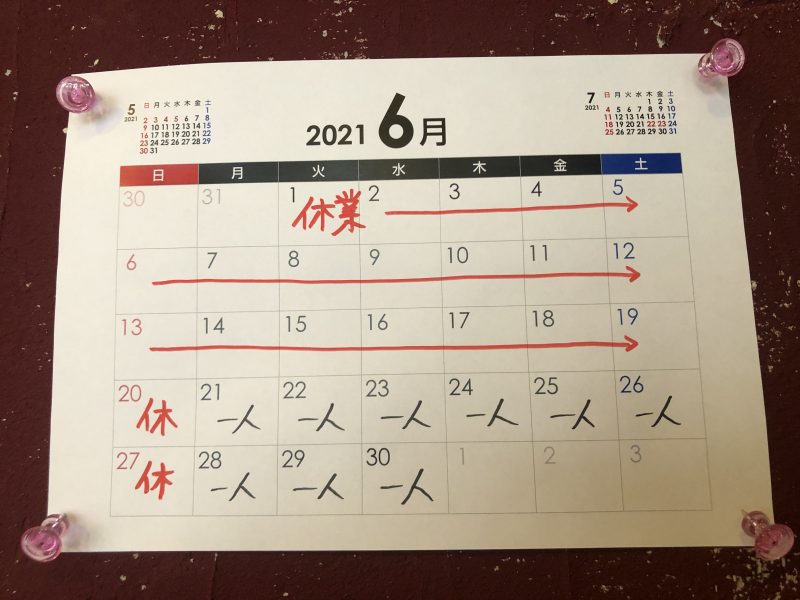 5
2021
日 月 火 水 木 金 土
1
2 3 4 5 6 7 8
9 10 11 12 13 14 15
16 17 18 19 20 21 22
23 24 25 26 27 28 29
30 31
2021 6月
7
2021
日 月 火 水 木 金 土
1 2 3
4 5 6 7 8 9 10
11 12 13 14 15 16 17
18 19 20 21 22 23 24
25 26 27 28 29 30 31
日 月 火 水 木 金 土
30 31 1 2 3 4 5
休業
6 7 8 9 10 11 12
13 14 15 16 17 18 19
20 21 22 23 24 25 26
休 一人 一人 一人 一人 一人 一人
27 28 29 30 1 2 3
休 一人 一人 一人